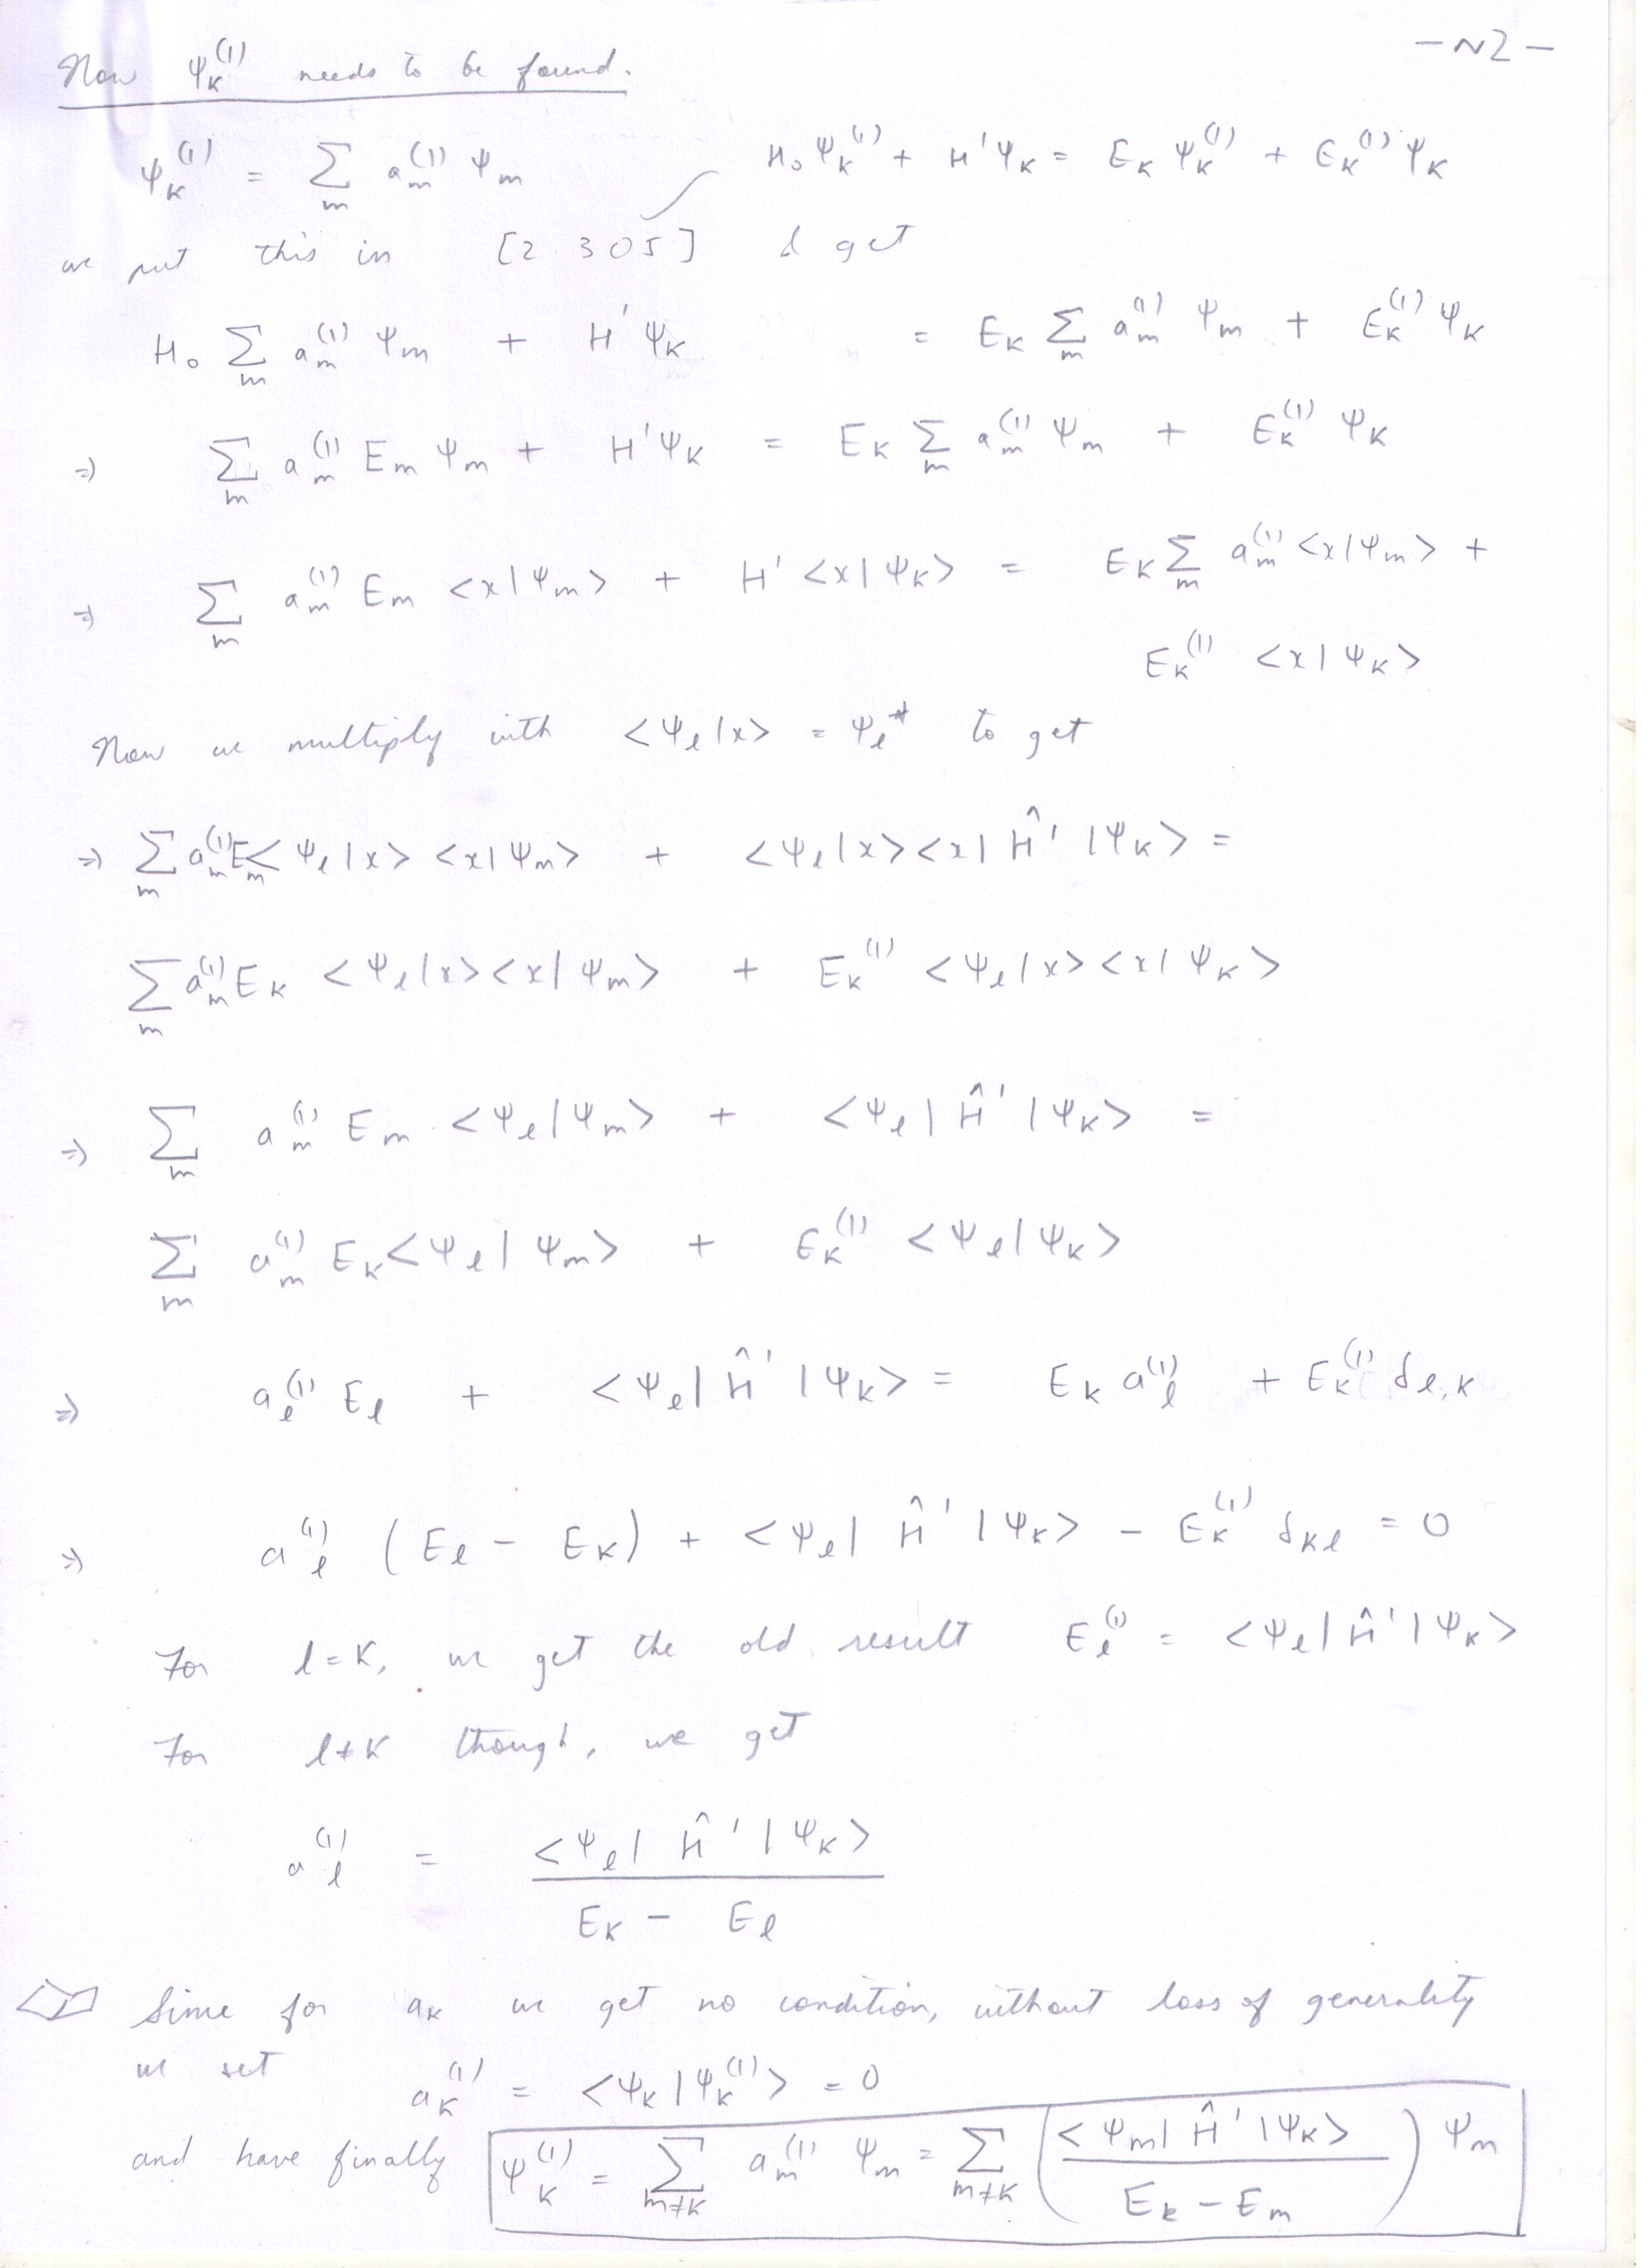 -N2-
Now ψₖ⁽¹⁾ needs to be found.
ψₖ⁽¹⁾ = Σₘ aₘ⁽¹⁾ ψₘ    H₀ ψₖ⁽¹⁾ + H'ψₖ = Eₖ ψₖ⁽¹⁾ + Eₖ⁽¹⁾ ψₖ
we put this in [2.305] & get
H₀ Σₘ aₘ⁽¹⁾ ψₘ + H'ψₖ = Eₖ Σₘ aₘ⁽¹⁾ ψₘ + Eₖ⁽¹⁾ ψₖ
⇒ Σₘ aₘ⁽¹⁾ Eₘ ψₘ + H'ψₖ = Eₖ Σₘ aₘ⁽¹⁾ ψₘ + Eₖ⁽¹⁾ ψₖ
⇒ Σₘ aₘ⁽¹⁾ Eₘ <x|ψₘ> + H' <x|ψₖ> = Eₖ Σₘ aₘ⁽¹⁾ <x|ψₘ> +
Eₖ⁽¹⁾ <x|ψₖ>
Now we multiply with <ψₗ|x> = ψₗ* to get
⇒ Σₘ aₘ⁽¹⁾Eₘ <ψₗ|x> <x|ψₘ> + <ψₗ|x><x| Ĥ' |ψₖ> =
Σₘ aₘ⁽¹⁾Eₖ <ψₗ|x><x|ψₘ> + Eₖ⁽¹⁾ <ψₗ|x><x|ψₖ>
⇒ Σₘ aₘ⁽¹⁾ Eₘ <ψₗ|ψₘ> + <ψₗ| Ĥ' |ψₖ> =
Σₘ aₘ⁽¹⁾ Eₖ<ψₗ|ψₘ> + Eₖ⁽¹⁾ <ψₗ|ψₖ>
⇒ aₗ⁽¹⁾ Eₗ + <ψₗ| Ĥ' |ψₖ> = Eₖ aₗ⁽¹⁾ + Eₖ⁽¹⁾ δₗ,ₖ
⇒ aₗ⁽¹⁾ (Eₗ - Eₖ) + <ψₗ| Ĥ' |ψₖ> - Eₖ⁽¹⁾ δₖₗ = 0
For l=k, we get the old result Eₗ⁽¹⁾ = <ψₗ| Ĥ' |ψₖ>
For l≠k though, we get
aₗ⁽¹⁾ = <ψₗ| Ĥ' |ψₖ> / Eₖ - Eₗ
Since for aₖ we get no condition, without loss of generality
we set aₖ⁽¹⁾ = <ψₖ|ψₖ⁽¹⁾> = 0
and have finally ψₖ⁽¹⁾ = Σₘ≠ₖ aₘ⁽¹⁾ ψₘ = Σₘ≠ₖ (<ψₘ| Ĥ' |ψₖ> / Eₖ - Eₘ) ψₘ